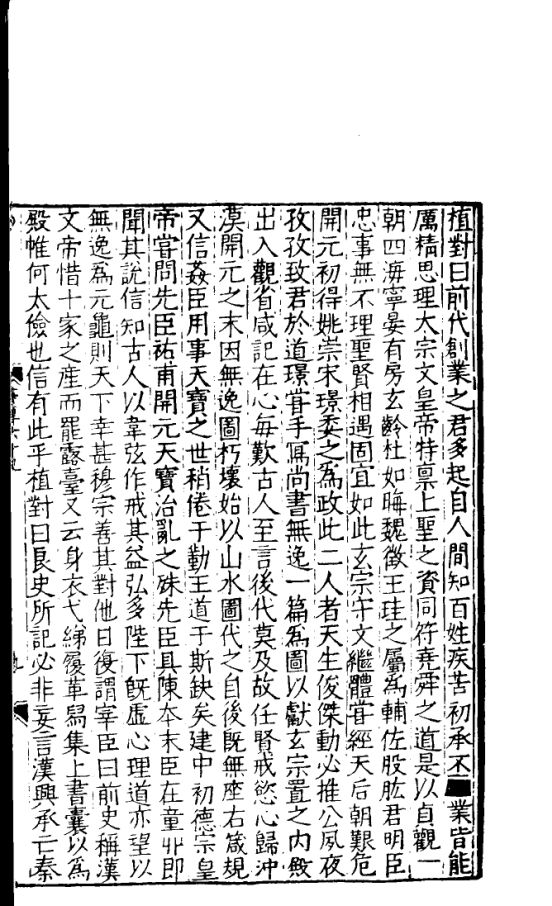 植對曰前代創業之君多起自人間知百姓疾苦初承丕業皆能
厲精思理太宗文皇帝特禀上聖之資同符堯舜之道是以貞觀一
朝四海寧晏有房玄齡杜如晦魏徵王珪之屬為輔佐股肱君明臣
忠事無不理聖賢相遇固宜如此玄宗守文繼體甞經天后朝艱危
開元初得姚崇宋璟委之為政此二人者天生俊傑動必推公夙夜
孜孜致君於道璟甞手寫尚書無逸一篇為圖以獻玄宗置之内殿
出入觀省咸記在心每歎古人至言後代莫及故任賢戒慾心歸沖
漠開元之末因無逸圖朽壞始以山水圖代之自後既無座右箴規
又信姦臣用事天寶之世稍倦于勤王道于斯缺矣建中初德宗皇
帝甞問先臣祐甫開元天寶治亂之殊先臣具陳夲末臣在童丱即
聞其說信知古人以韋弦作戒其益弘多陛下旣虛心理道亦望以
無逸為元龜則天下幸甚穆宗善其對他日復謂宰臣曰前史稱漢
文帝惜十家之産而罷露臺又云身衣弋綈履革舄集上書囊以為
殿帷何太儉也信有此乎植對曰良史所記必非妄言漢興承亡秦